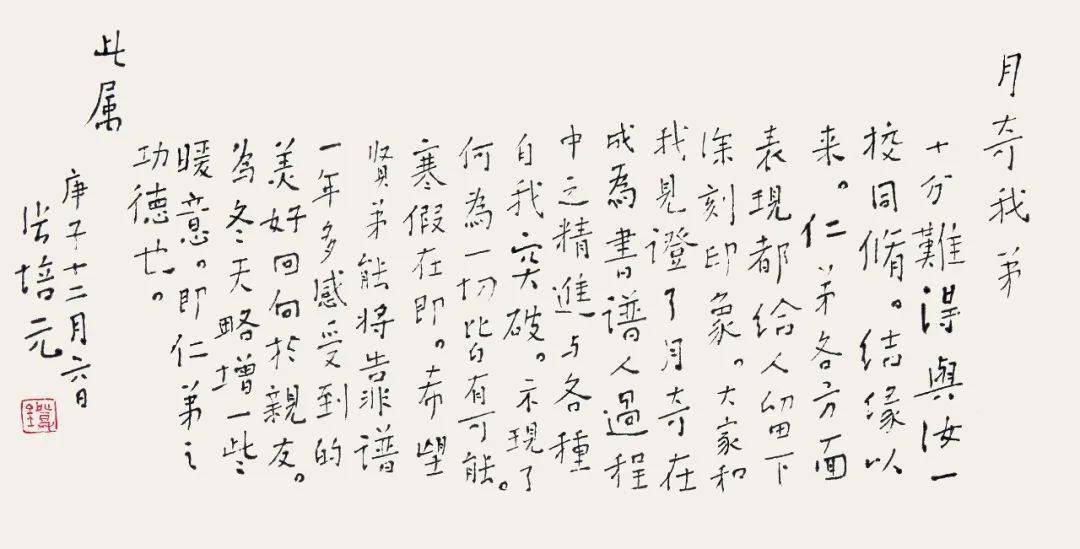 月奇我弟
十分難得與汝一
校同脩。結緣以
来。仁弟各方面
表現都给人留下
深刻印象。大家和
我見證了月奇在
成為書譜人過程
中之精進与各種
自我突破。示現了
何為一切皆有可能。
寒假在即。希望
贤弟能将書譜
一年多感受到的
美好回向於親友。
為冬天略增一些
暖意。即仁弟之
功德也。
此属
庚子十二月六日
培元